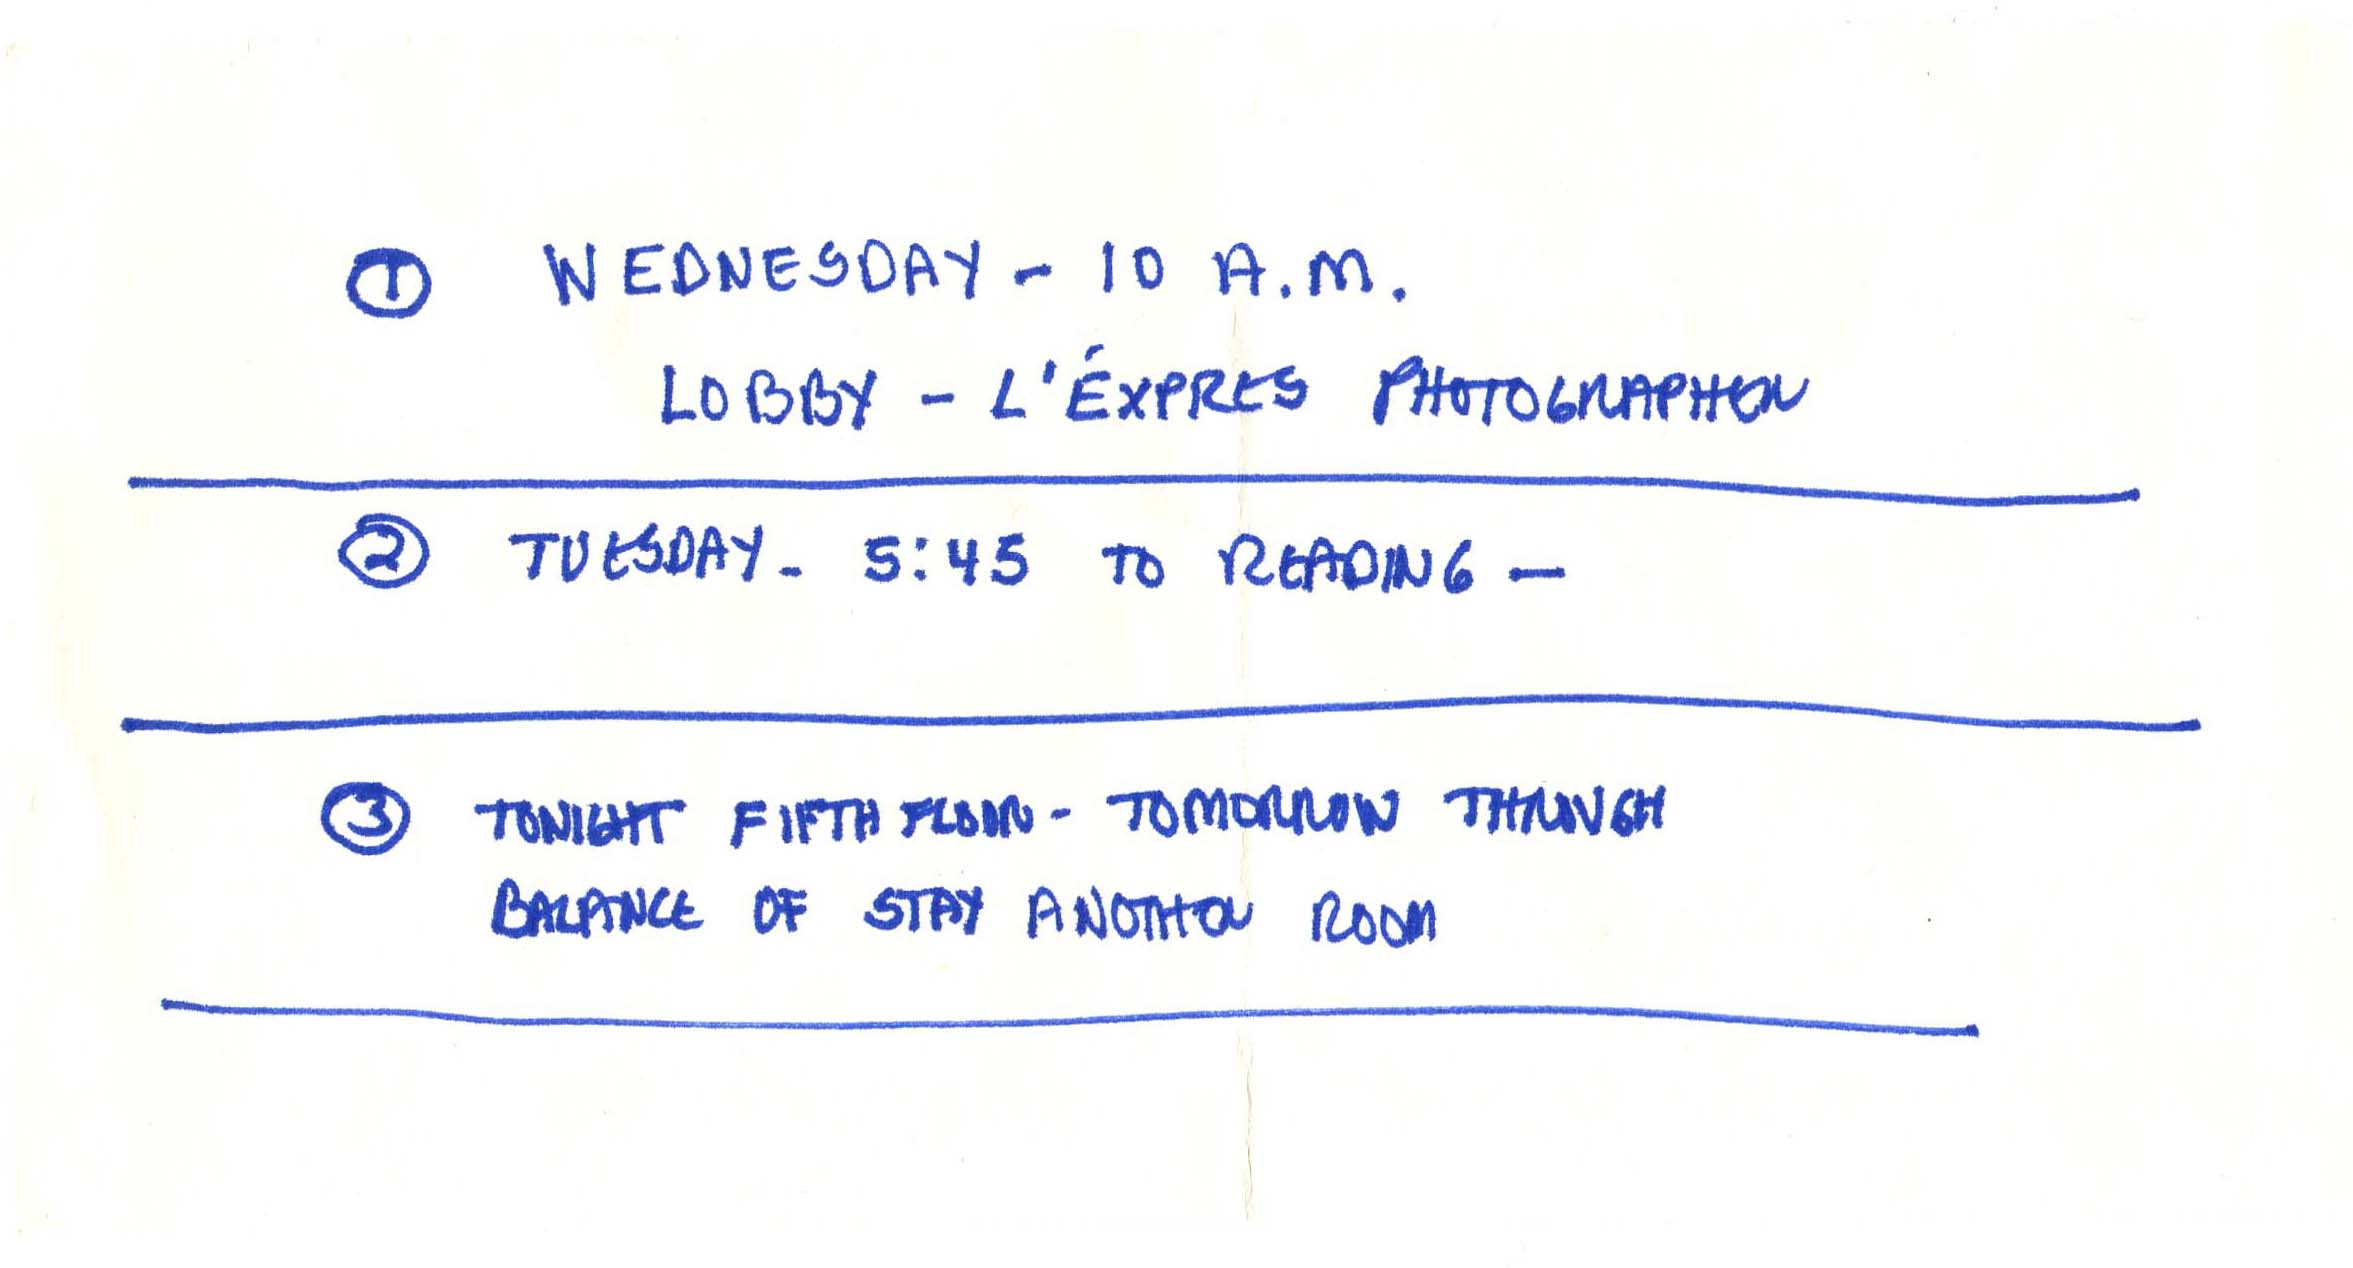 ① WEDNESDAY - 10 A.M.
LOBBY - L'ÉXPRES PHOTOGRAPHER
② TUESDAY - 5:45 TO READING —
③ TONIGHT FIFTH FLOOR - TOMORROW THROUGH
BALANCE OF STAY ANOTHER ROOM